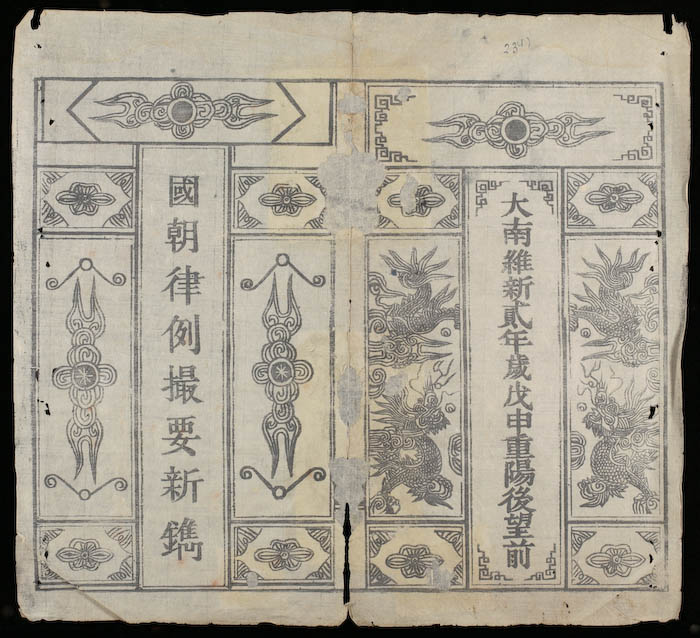 2347
大南維新貳年歲戊申重陽後望前
國朝律例撮要新鐫